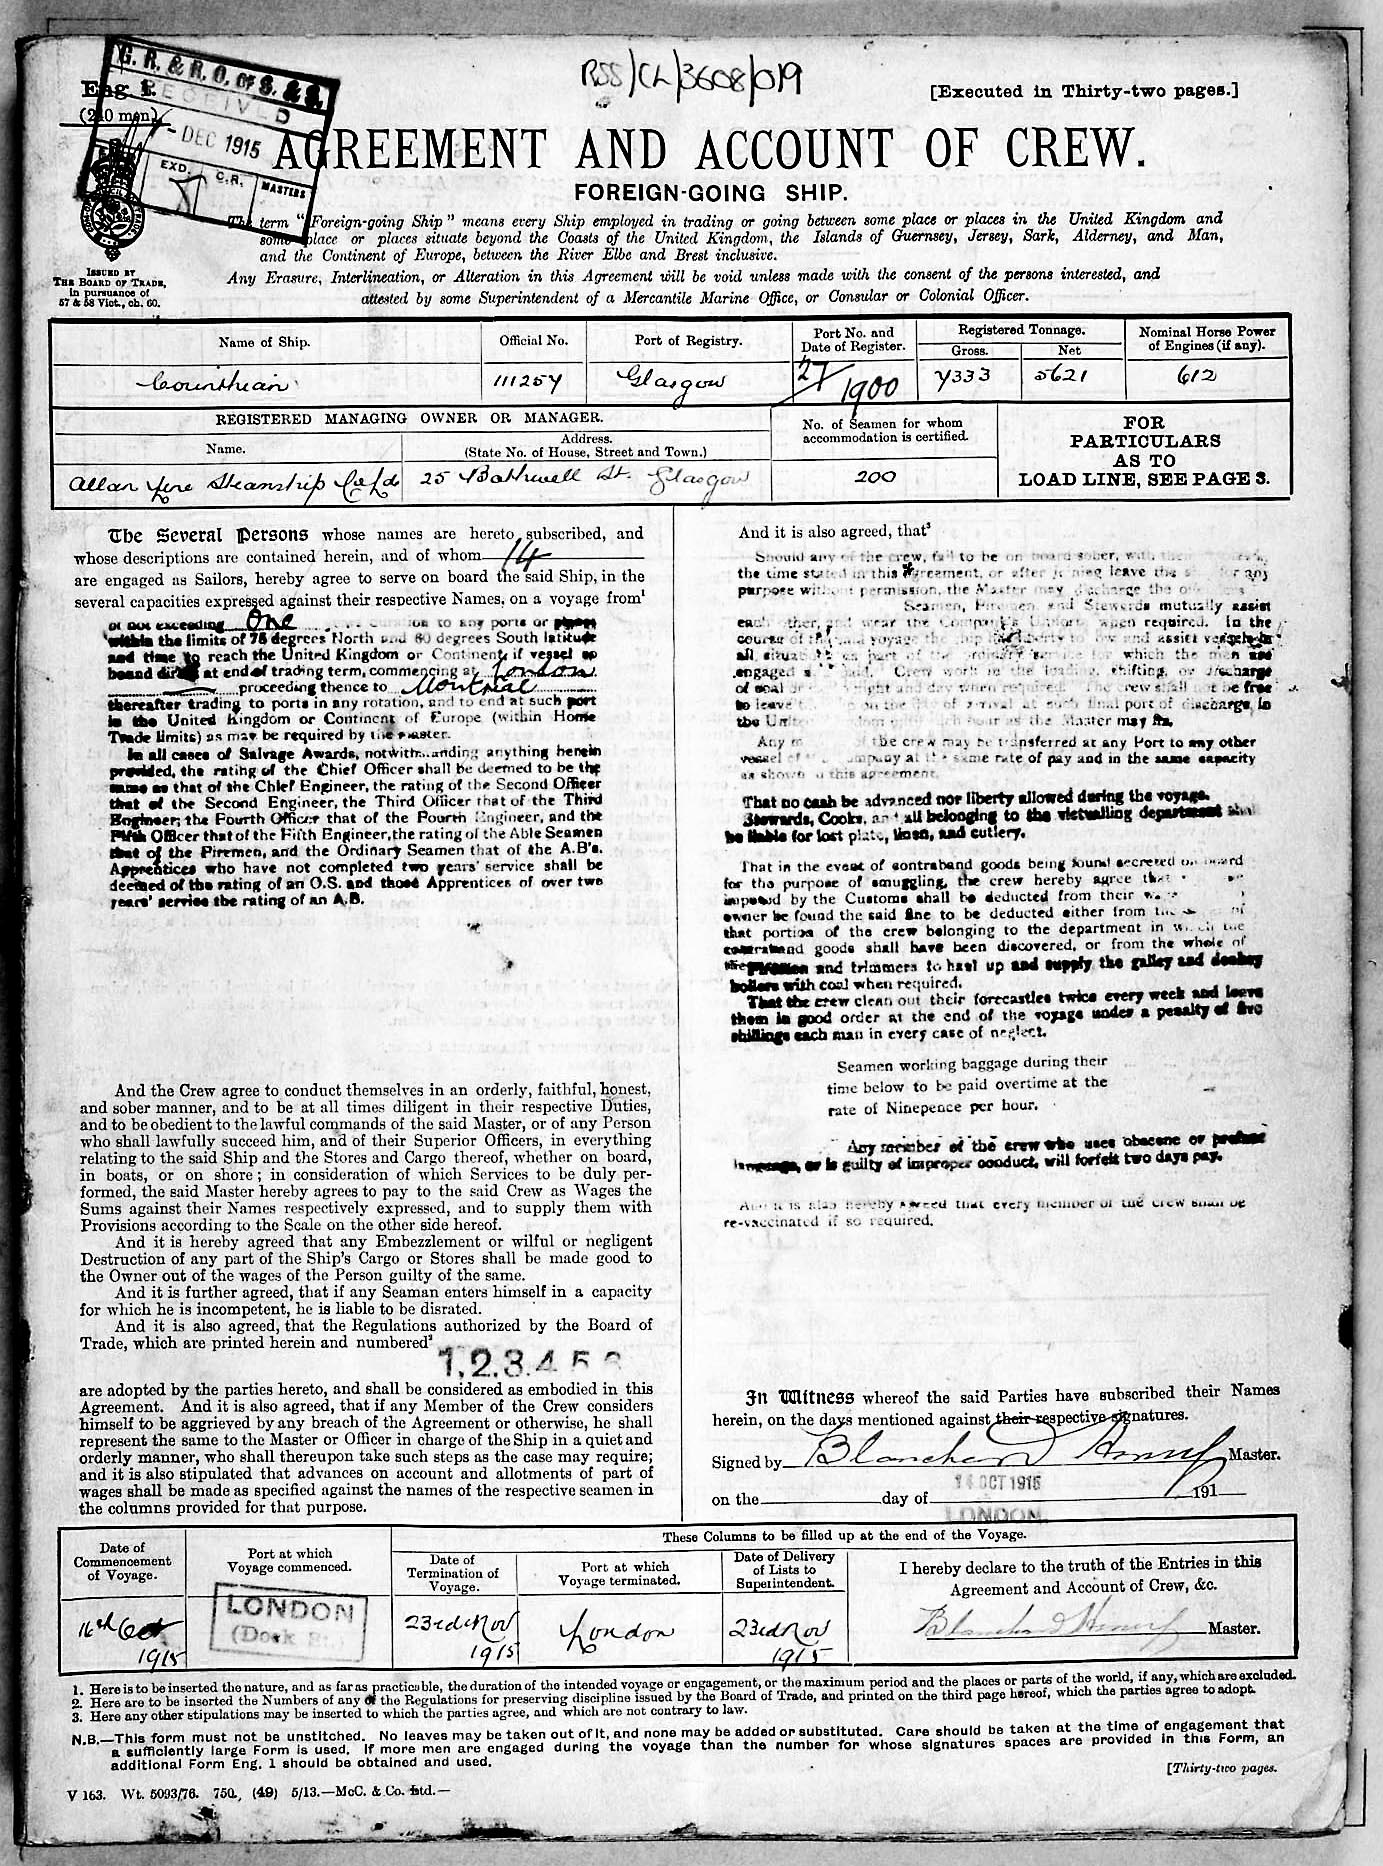 RSS/CL/3608/019
G. R. & R. O. OF S. & S.
RECEIVED
- DEC 1915
EXD. C.R. MASTERS
Eng 1.
(240 men)
[Executed in Thirty-two pages.]
AGREEMENT AND ACCOUNT OF CREW.
FOREIGN-GOING SHIP.
ISSUED BY
THE BOARD OF TRADE,
in pursuance of
57 & 58 Vict., ch. 60.
The term "Foreign-going Ship" means every Ship employed in trading or going between some place or places in the United Kingdom and
some place or places situate beyond the Coasts of the United Kingdom, the Islands of Guernsey, Jersey, Sark, Alderney, and Man,
and the Continent of Europe, between the River Elbe and Brest inclusive.
Any Erasure, Interlineation, or Alteration in this Agreement will be void unless made with the consent of the persons interested, and
attested by some Superintendent of a Mercantile Marine Office, or Consular or Colonial Officer.
Name of Ship. Official No. Port of Registry. Port No. and Date of Register. Registered Tonnage. Gross. Net Nominal Horse Power of Engines (if any).
Corinthian 111257 Glasgow 27/1900 7333 5621 612
REGISTERED MANAGING OWNER OR MANAGER.
Name. Address. (State No. of House, Street and Town.)
No. of Seamen for whom accommodation is certified.
FOR PARTICULARS AS TO LOAD LINE, SEE PAGE 3.
Allan Line Steamship Co Ld 25 Bothwell St. Glasgow 200
The Several Persons whose names are hereto subscribed, and
whose descriptions are contained herein, and of whom 14
are engaged as Sailors, hereby agree to serve on board the said Ship, in the
several capacities expressed against their respective Names, on a voyage from¹
of not exceeding One duration to any ports or places
within the limits of 75 degrees North and 60 degrees South latitude
and time to reach the United Kingdom or Continent if vessel so
bound direct at end of trading term, commencing at London
proceeding thence to Montreal
thereafter trading to ports in any rotation, and to end at such port
in the United Kingdom or Continent of Europe (within Home
Trade limits) as may be required by the Master.
In all cases of Salvage Awards, notwithstanding anything herein
provided, the rating of the Chief Officer shall be deemed to be the
same as that of the Chief Engineer, the rating of the Second Officer
that of the Second Engineer, the Third Officer that of the Third
Engineer; the Fourth Officer that of the Fourth Engineer, and the
Fifth Officer that of the Fifth Engineer, the rating of the Able Seamen
that of the Firemen, and the Ordinary Seamen that of the A.B's.
Apprentices who have not completed two years' service shall be
deemed of the rating of an O.S. and those Apprentices of over two
years' service the rating of an A.B.
And the Crew agree to conduct themselves in an orderly, faithful, honest,
and sober manner, and to be at all times diligent in their respective Duties,
and to be obedient to the lawful commands of the said Master, or of any Person
who shall lawfully succeed him, and of their Superior Officers, in everything
relating to the said Ship and the Stores and Cargo thereof, whether on board,
in boats, or on shore; in consideration of which Services to be duly per-
formed, the said Master hereby agrees to pay to the said Crew as Wages the
Sums against their Names respectively expressed, and to supply them with
Provisions according to the Scale on the other side hereof.
And it is hereby agreed that any Embezzlement or wilful or negligent
Destruction of any part of the Ship's Cargo or Stores shall be made good to
the Owner out of the wages of the Person guilty of the same.
And it is further agreed, that if any Seaman enters himself in a capacity
for which he is incompetent, he is liable to be disrated.
And it is also agreed, that the Regulations authorized by the Board of
Trade, which are printed herein and numbered²
1,2,3,4,5,6
are adopted by the parties hereto, and shall be considered as embodied in this
Agreement. And it is also agreed, that if any Member of the Crew considers
himself to be aggrieved by any breach of the Agreement or otherwise, he shall
represent the same to the Master or Officer in charge of the Ship in a quiet and
orderly manner, who shall thereupon take such steps as the case may require;
and it is also stipulated that advances on account and allotments of part of
wages shall be made as specified against the names of the respective seamen in
the columns provided for that purpose.
And it is also agreed, that³
Should any of the crew, fail to be on board sober, with their
the time stated in this Agreement, or after joining leave the ship for any
purpose without permission, the Master may discharge the offenders
Seamen, Firemen and Stewards mutually assist
each other, and wear the Company's Uniform when required. In the
course of the said voyage the ship liberty to tow and assist vessels in
all situations as part of the ordinary service for which the men are
engaged Crew work in the loading, shifting, or discharge
of coal night and day when required. The crew shall not be free
to leave on the day of arrival at such final port of discharge, in
the United hour as the Master may fix.
Any of the crew may be transferred at any Port to any other
vessel of the Company at the same rate of pay and in the same capacity
as shown in this agreement.
That no cash be advanced nor liberty allowed during the voyage.
Stewards, Cooks, and all belonging to the victualling department shall
be liable for lost plate, linen, and cutlery.
That in the event of contraband goods being found secreted on board
for the purpose of smuggling, the crew hereby agree that
imposed by the Customs shall be deducted from their
owner be found the said fine to be deducted either from the of
that portion of the crew belonging to the department in which the
contraband goods shall have been discovered, or from the whole of
the Firemen and trimmers to haul up and supply the galley and donkey
boilers with coal when required.
That the crew clean out their forecastles twice every week and leave
them in good order at the end of the voyage under a penalty of five
shillings each man in every case of neglect.
Seamen working baggage during their
time below to be paid overtime at the
rate of Ninepence per hour.
Any member of the crew who uses obscene or profane
language, or is guilty of improper conduct, will forfeit two days pay.
And it is also hereby agreed that every member of the crew shall be
re-vaccinated if so required.
In Witness whereof the said Parties have subscribed their Names
herein, on the days mentioned against their respective signatures.
Signed by Blanchard Henry Master.
on the day of 14 OCT 1915 191
LONDON.
These Columns to be filled up at the end of the Voyage.
Date of Commencement of Voyage. Port at which Voyage commenced. Date of Termination of Voyage. Port at which Voyage terminated. Date of Delivery of Lists to Superintendent.
I hereby declare to the truth of the Entries in this
Agreement and Account of Crew, &c.
16th Oct 1915 LONDON (Dock St.) 23rd Nov 1915 London 23rd Nov 1915 Blanchard Henry Master.
1. Here is to be inserted the nature, and as far as practicable, the duration of the intended voyage or engagement, or the maximum period and the places or parts of the world, if any, which are excluded.
2. Here are to be inserted the Numbers of any of the Regulations for preserving discipline issued by the Board of Trade, and printed on the third page hereof, which the parties agree to adopt.
3. Here any other stipulations may be inserted to which the parties agree, and which are not contrary to law.
N.B.—This form must not be unstitched. No leaves may be taken out of it, and none may be added or substituted. Care should be taken at the time of engagement that
a sufficiently large Form is used. If more men are engaged during the voyage than the number for whose signatures spaces are provided in this Form, an
additional Form Eng. 1 should be obtained and used.
[Thirty-two pages.
V 163. Wt. 5093/76. 750. (49) 5/13.—McC. & Co. Ltd.—